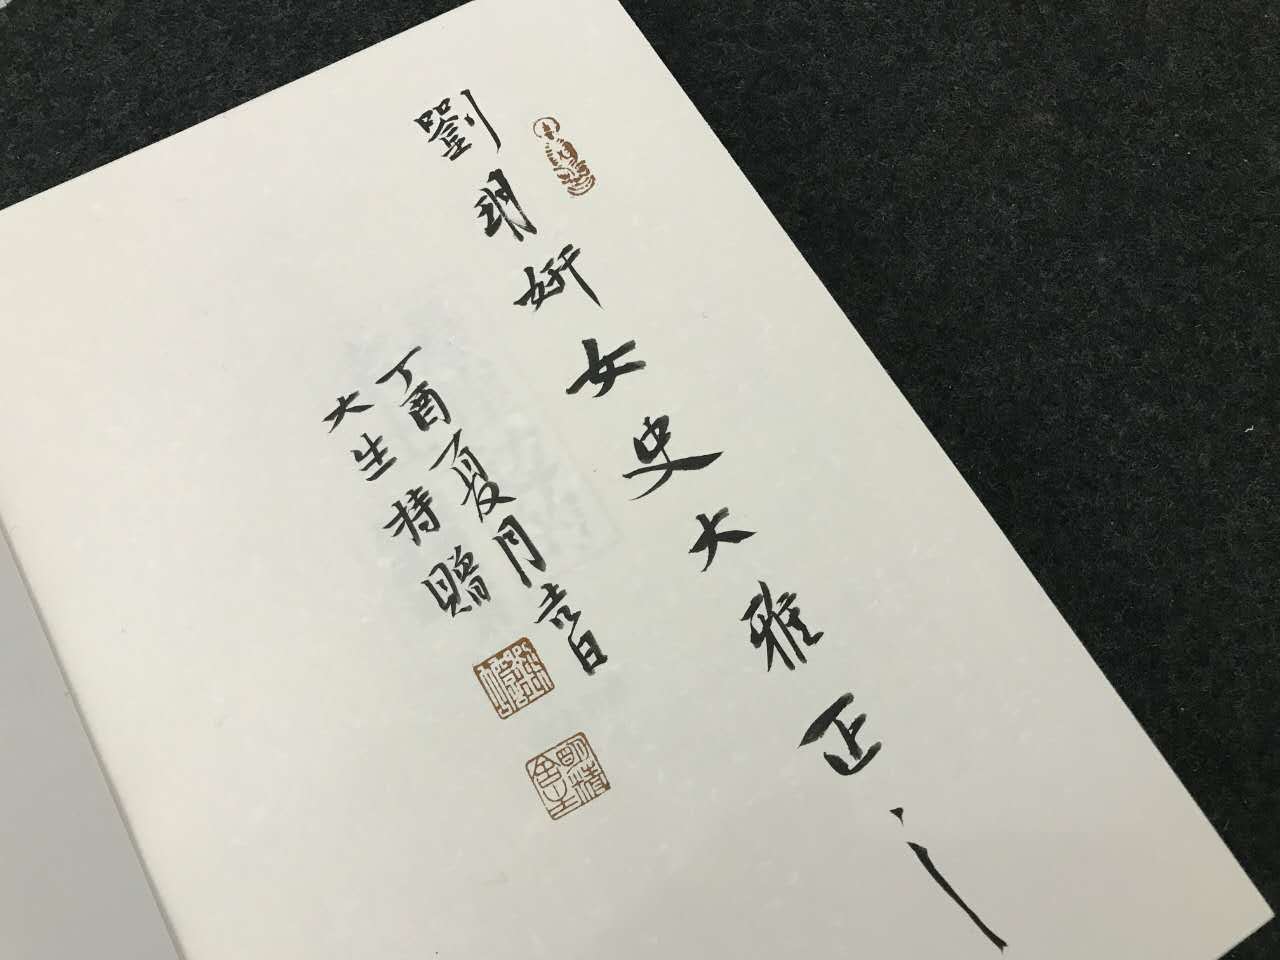 劉明妍女史大雅正之
丁酉夏月吉日
大生持贈